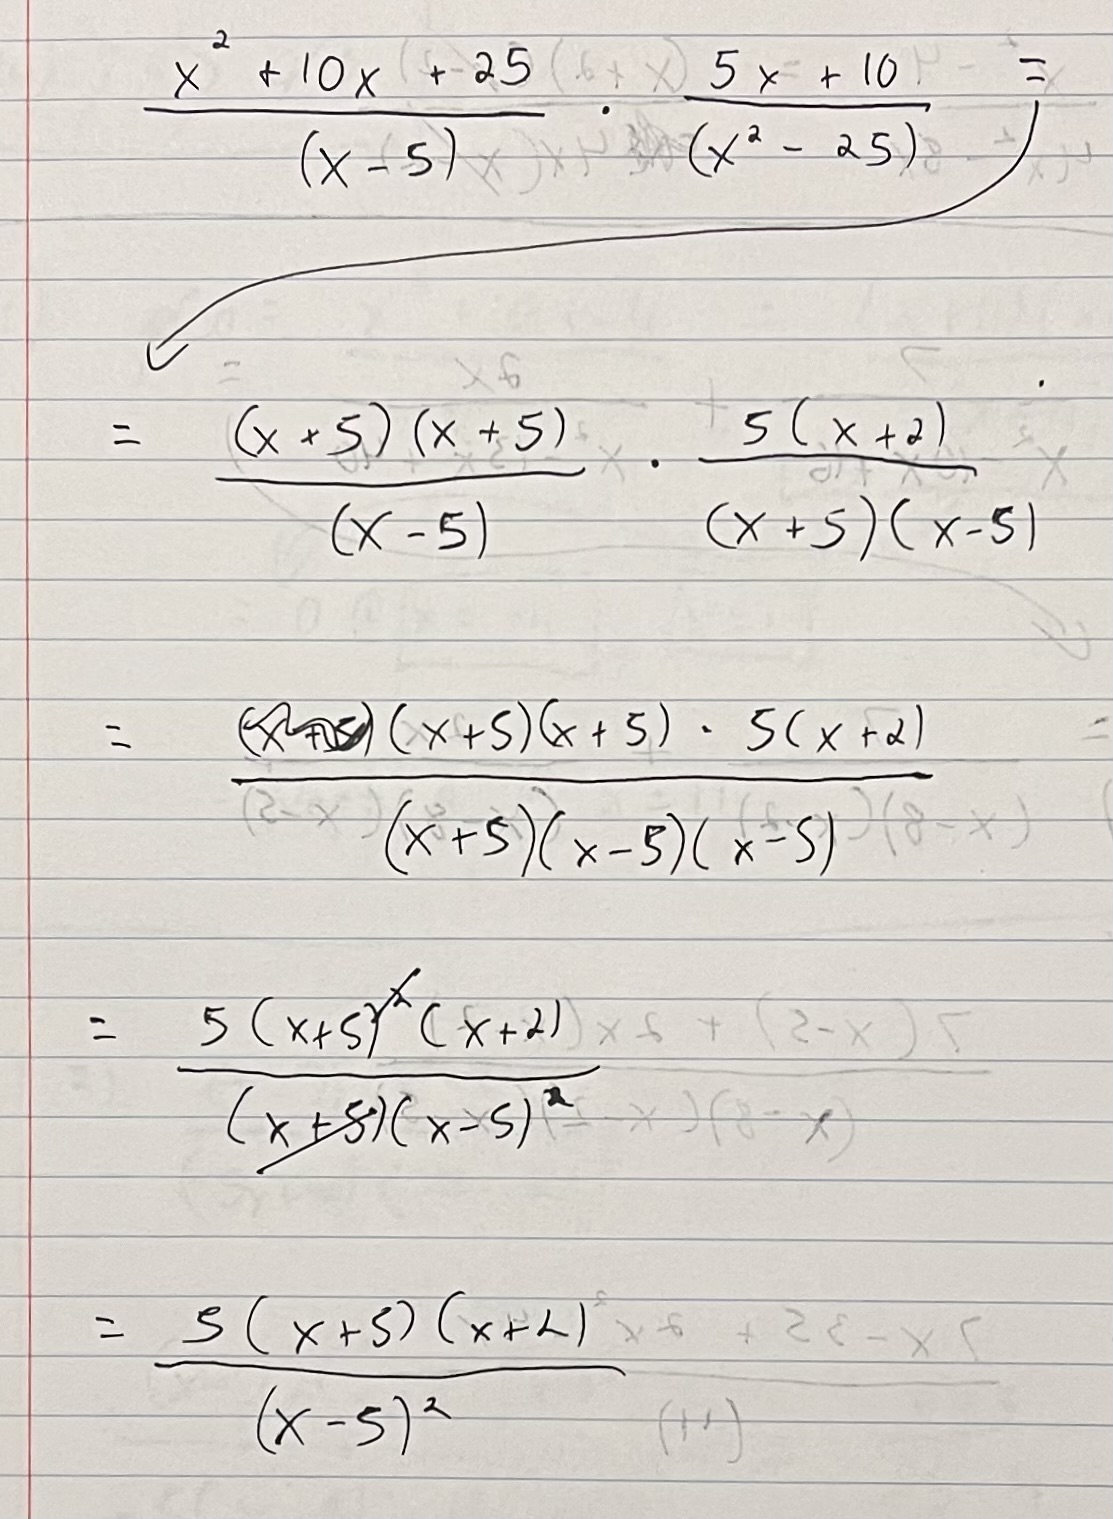 x² + 10x + 25 / (x - 5) · 5x + 10 / (x² - 25) =
= (x + 5)(x + 5) / (x - 5) · 5(x + 2) / (x + 5)(x - 5)
= (x+5)(x+5) · 5(x+2) / (x+5)(x-5)(x-5)
= 5(x+5)²(x+2) / (x+5)(x-5)²
= 5(x+5)(x+2) / (x-5)²